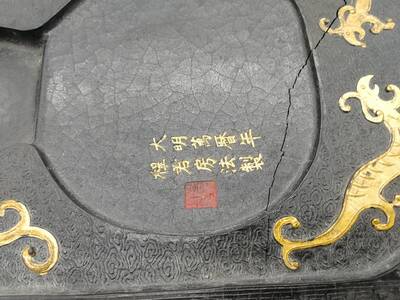 大明萬曆年
程君房法製